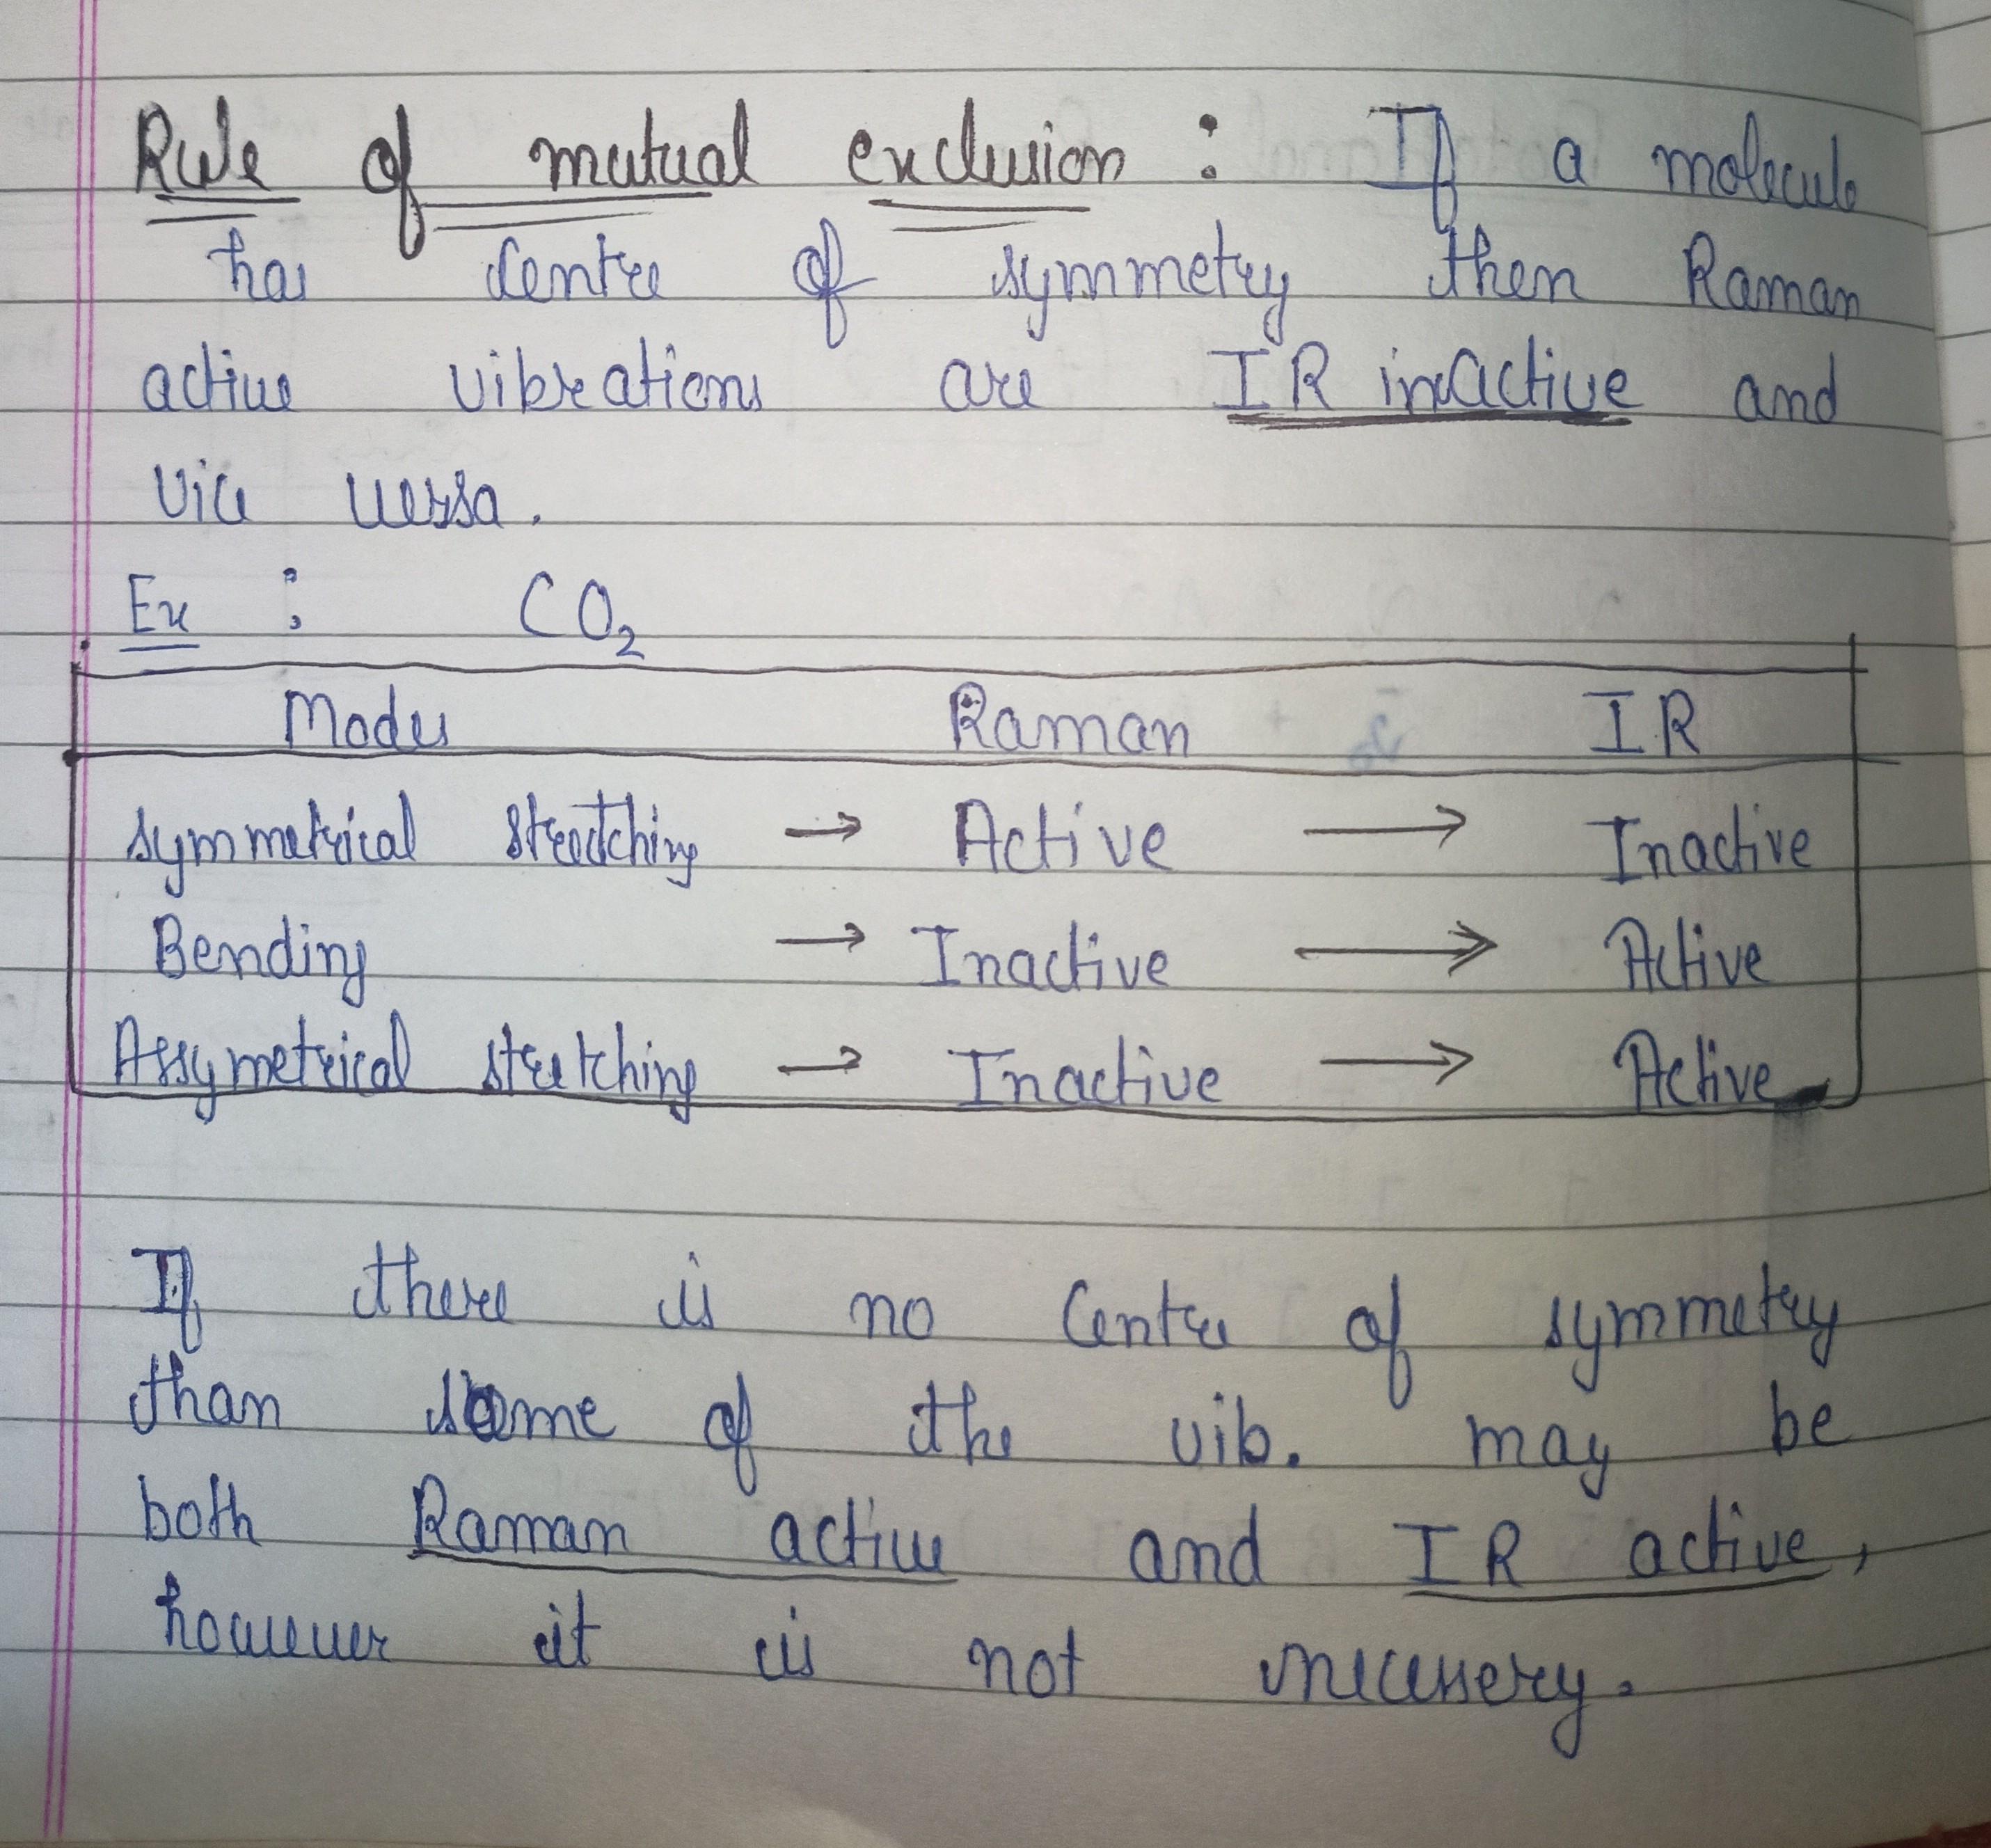 Rule of mutual exclusion : If a molecule
has centre of symmetry then Raman
active vibrations are IR inactive and
vice versa.
Ex : CO₂
Modes Raman IR
Symmetrical stretching → Active → Inactive
Bending → Inactive → Active
Assymetrical stretching → Inactive → Active
If there is no centre of symmetry
than some of the vib. may be
both Raman active and IR active,
however it is not necessery.